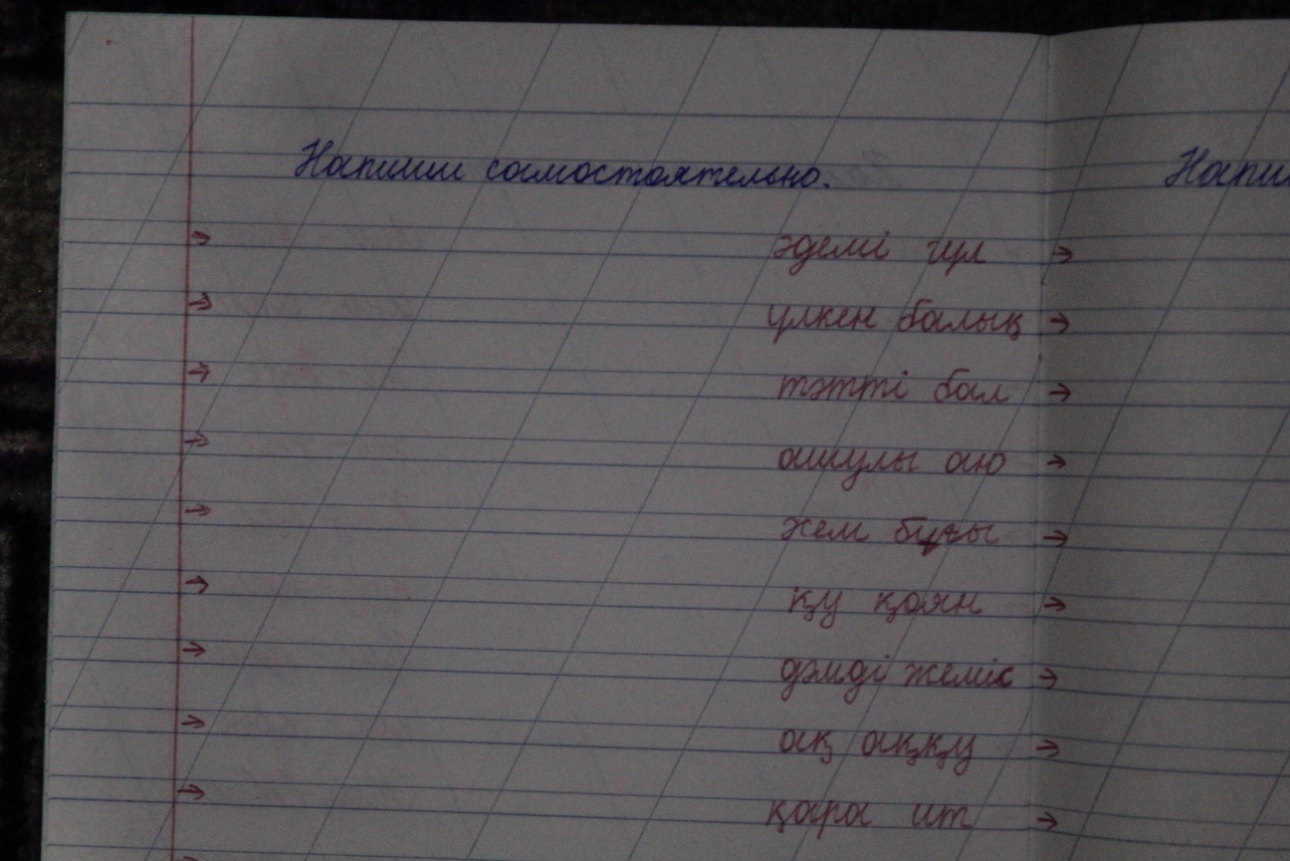 Напиши самостоятельно.
әдемі гүл
үлкен балық
тәтті бал
ашулы аю
жем бұғы
қу қоян
дәмді жеміс
ақ аққу
қара ит